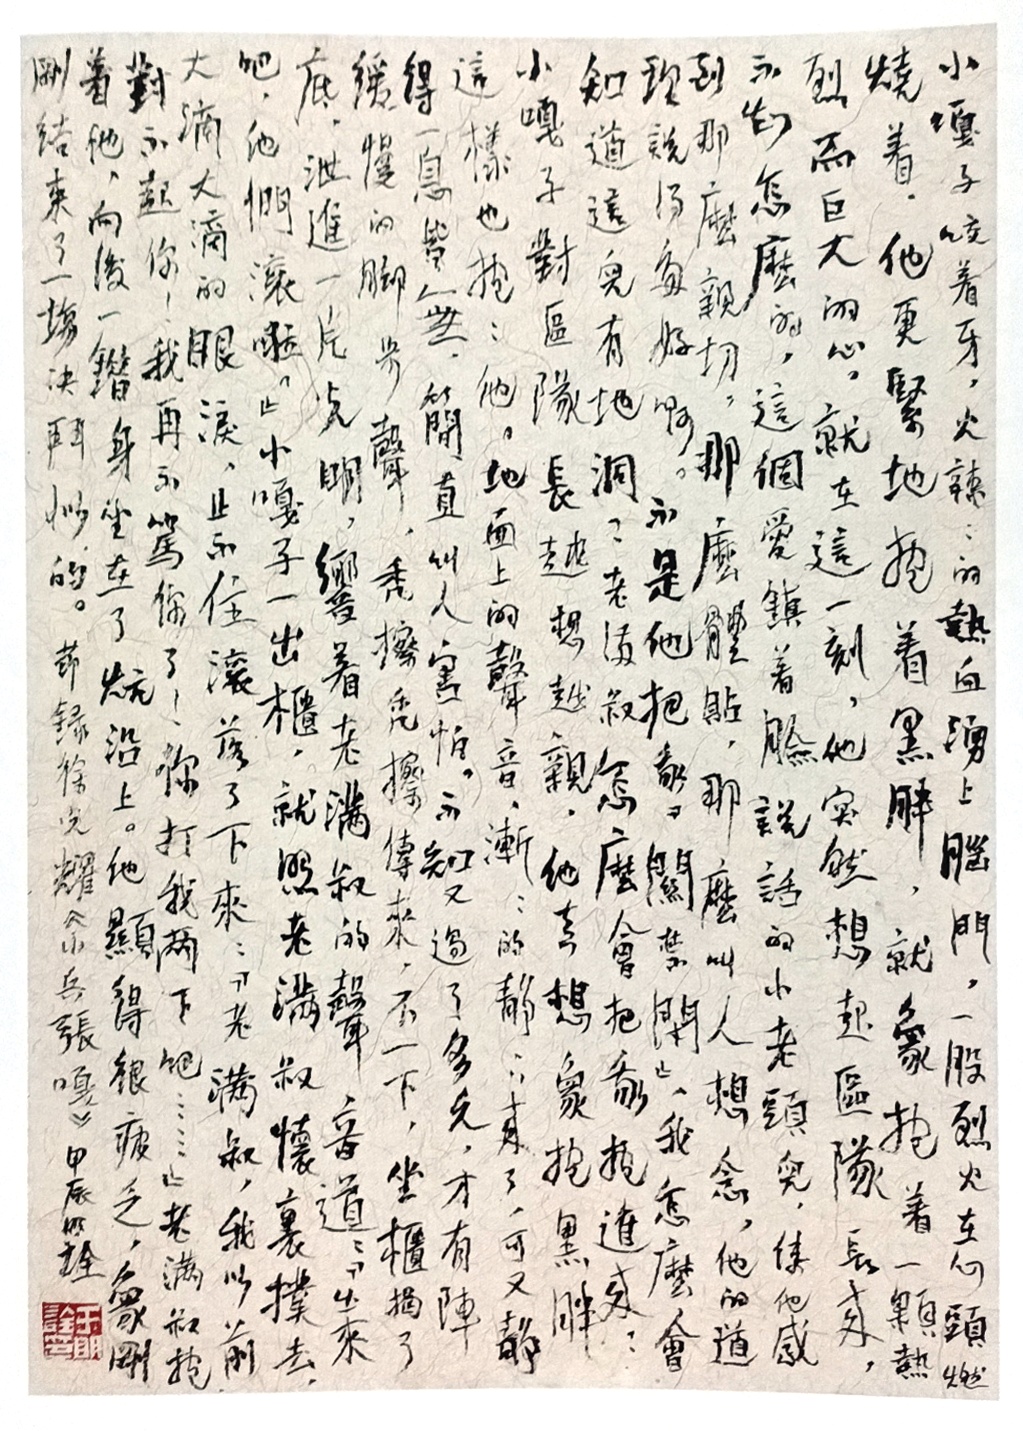 小嘎子咬着牙，火辣〻的熱血湧上腦門，一股烈火在心頭燃
燒着。他更緊地抱着黑胖，就象抱着一顆熱
烈而巨大的心。就在這一刻，他突然想起區隊長來，
不知怎麼的，這個愛鎮着臉說話的小老頭兒，使他感
到那麼親切，那麼體貼，那麼叫人想念，他的道
理說得多好啊。不是他把我「關禁閉」，我怎麼會
知道這兒有地洞？老滿叔怎麼會把我抱進來〻
小嘎子對區隊長越想越親，他真想象抱黑胖
這樣也抱〻他。地面上的聲音，漸〻的靜〻了來了，可又靜
得一息皆無，簡直叫人害怕。不知又過了多久，才有陣
緩慢的腳步聲，禿擦禿擦傳來，丕一下，坐櫃揭了
底，泄進一片光明，響着老滿叔的聲音道：「出來
吧，他們滾啦」小嘎子一出櫃，就照老滿叔懷裏撲去，
大滴大滴的眼淚，止不住滾落了下來〻「老滿叔，我以前
對不起你！我再不罵你了！你打我兩下吧……」老滿叔抱
着他，向後一錯身坐在了炕沿上。他顯得很疲乏，象剛
剛結束了一場決鬥似的。節録徐光耀《小兵張嘎》甲辰明銓